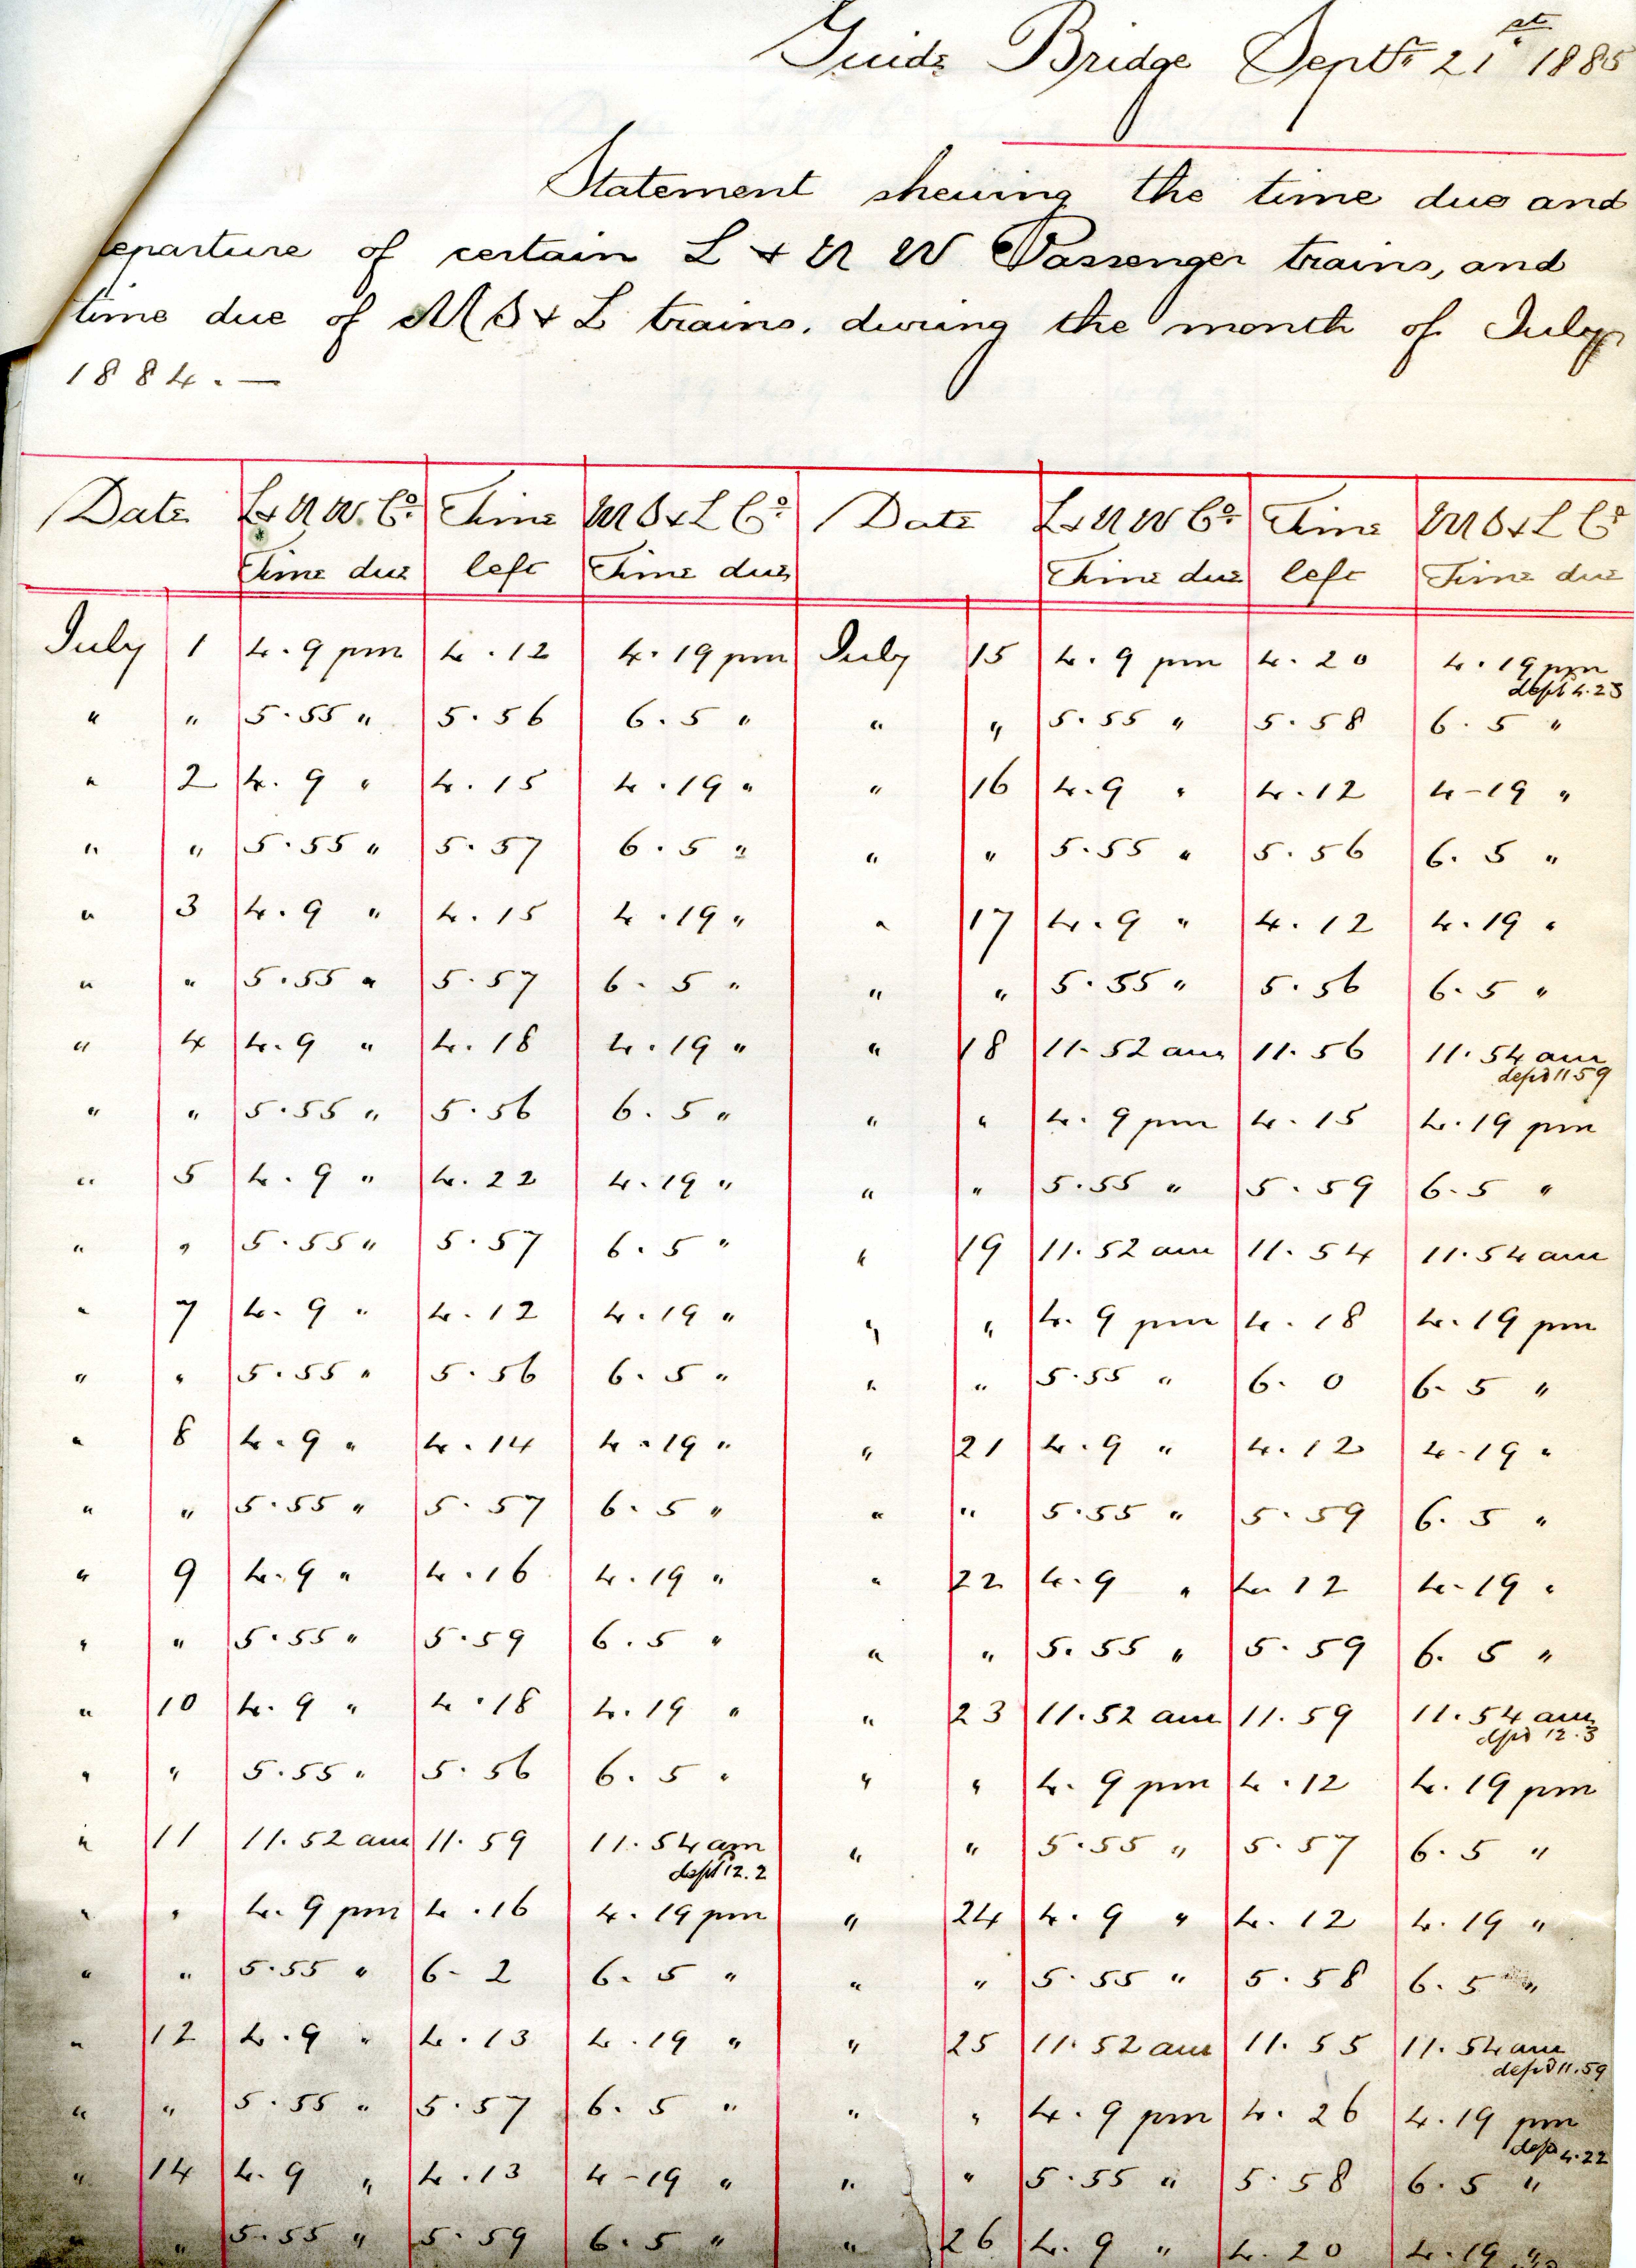 Guide Bridge Septr 21st 1885
Statement shewing the time due and
eparture of certain L & N W Passenger trains, and
time due of M S & L trains, during the month of July
1884. —
Date L&NW.Co. Time MS&L Co. Date L&NW Co. Time MS&L Co
Time due left Time due Time due left Time due
July 1 4.9 pm 4.12 4.19 pm July 15 4.9 pm 4.20 4.19 pm
dept 4.23
" " 5.55 " 5.56 6.5 " " " 5.55 " 5.58 6.5 "
" 2 4.9 " 4.15 4.19 " " 16 4.9 " 4.12 4-19 "
" " 5.55 " 5.57 6.5 " " " 5.55 " 5.56 6.5 "
" 3 4.9 " 4.15 4.19 " " 17 4.9 " 4.12 4.19 "
" " 5.55 " 5.57 6.5 " " " 5.55 " 5.56 6.5 "
" 4 4.9 " 4.18 4.19 " " 18 11.52 am 11.56 11.54 am
depd 11 59
" " 5.55 " 5.56 6.5 " " " 4.9 pm 4.15 4.19 pm
" 5 4.9 " 4.22 4.19 " " " 5.55 " 5.59 6.5 "
" " 5.55 " 5.57 6.5 " " 19 11.52 am 11.54 11.54 am
" 7 4.9 " 4.12 4.19 " " " 4.9 pm 4.18 4.19 pm
" " 5.55 " 5.56 6.5 " " " 5.55 " 6.0 6.5 "
" 8 4.9 " 4.14 4.19 " " 21 4.9 " 4.12 4.19 "
" " 5.55 " 5.57 6.5 " " " 5.55 " 5.59 6.5 "
" 9 4.9 " 4.16 4.19 " " 22 4.9 " 4.12 4.19 "
" " 5.55 " 5.59 6.5 " " " 5.55 " 5.59 6.5 "
" 10 4.9 " 4.18 4.19 " " 23 11.52 am 11.59 11.54 am
depd 12.3
" " 5.55 " 5.56 6.5 " " " 4.9 pm 4.12 4.19 pm
" 11 11.52 am 11.59 11.54 am " " 5.55 " 5.57 6.5 "
dept 12.2
" " 4.9 pm 4.16 4.19 pm " 24 4.9 " 4.12 4.19 "
" " 5.55 " 6-2 6.5 " " " 5.55 " 5.58 6.5 "
" 12 4.9 " 4.13 4.19 " " 25 11.52 am 11.55 11.54 am
depd 11.59
" " 5.55 " 5.57 6.5 " " " 4.9 pm 4.26 4.19 pm
dep 4.22
" 14 4.9 " 4.13 4-19 " " " 5.55 " 5.58 6.5 "
" " 5.55 " 5.59 6.5 " " 26 4.9 " 4.20 4.19 "